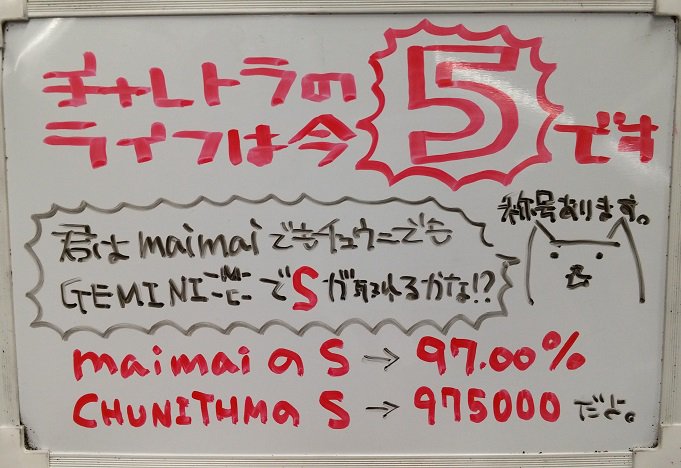 ギャレトラの
ライフは今5です
称号あります。
君はmaimaiでもチュウニでも
GEMINI-M-でSが取れるかな!?
maimaiのS→97.00%
CHUNITHMのS→975000だと。